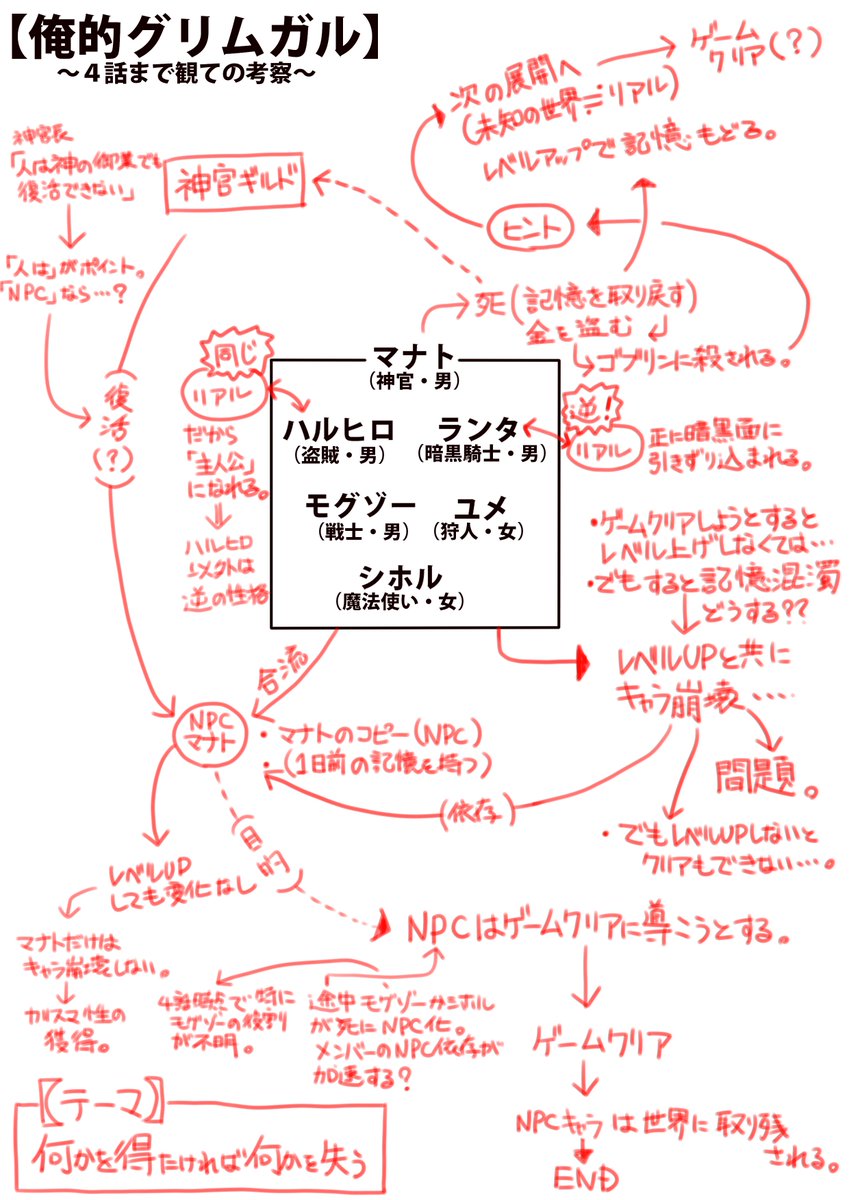 【俺的グリムガル】
～４話まで観ての考察～
ゲーム
クリア(？)
次の展開へ
(未知の世界≒リアル)
レベルアップで記憶もどる。
神官長
「人は神の御業でも
復活できない」
神官ギルド
ヒント
「人は」がポイント。
「NPC」なら…？
死(記憶を取り戻す)
金を盗む
ゴブリンに殺される。
復活
(？)
同じ
リアル
だから
「主人公」
になれる。
ハルヒロ
以外は
逆の性格
マナト
（神官・男）
ハルヒロ
（盗賊・男）
ランタ
（暗黒騎士・男）
モグゾー
（戦士・男）
ユメ
（狩人・女）
シホル
（魔法使い・女）
逆！
リアル
正に暗黒面に
引きずり込まれる。
・ゲームクリアしようとすると
レベル上げしなくては…
・でもすると記憶混濁
どうする??
レベルUPと共に
キャラ崩壊……
問題。
・でもレベルUPしないと
クリアもできない…。
合流
NPC
マナト
・マナトのコピー(NPC)
・(1日前の記憶を持つ)
(依存)
(目的)
レベルUP
しても変化なし
マナトだけは
キャラ崩壊しない。
カリスマ性の
獲得。
NPCはゲームクリアに導こうとする。
4話時点で特に
モグゾーの役割
が不明。
途中モグゾーかシホル
が死にNPC化。
メンバーのNPC依存が
加速する？
ゲームクリア
NPCキャラは世界に取り残
される。
END
【テーマ】
何かを得たければ何かを失う